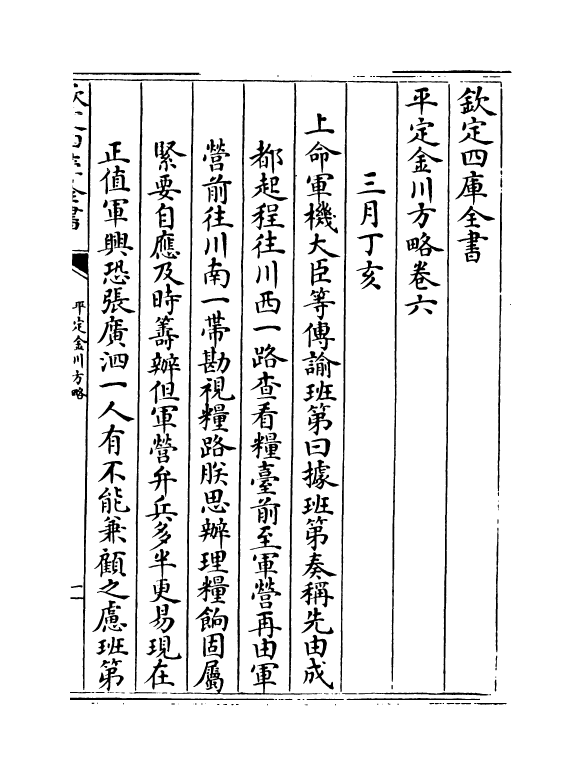 欽定四庫全書
平定金川方略卷六
三月丁亥
上命軍機大臣等傳諭班第曰據班第奏稱先由成
都起程往川西一路查看糧臺前至軍營再由軍
營前往川南一帶勘視糧路朕思辦理糧餉固屬
緊要自應及時籌辦但軍營弁兵多半更易現在
正值軍興恐張廣泗一人有不能兼顧之慮班第
欽定四庫全書
平定金川方略
一